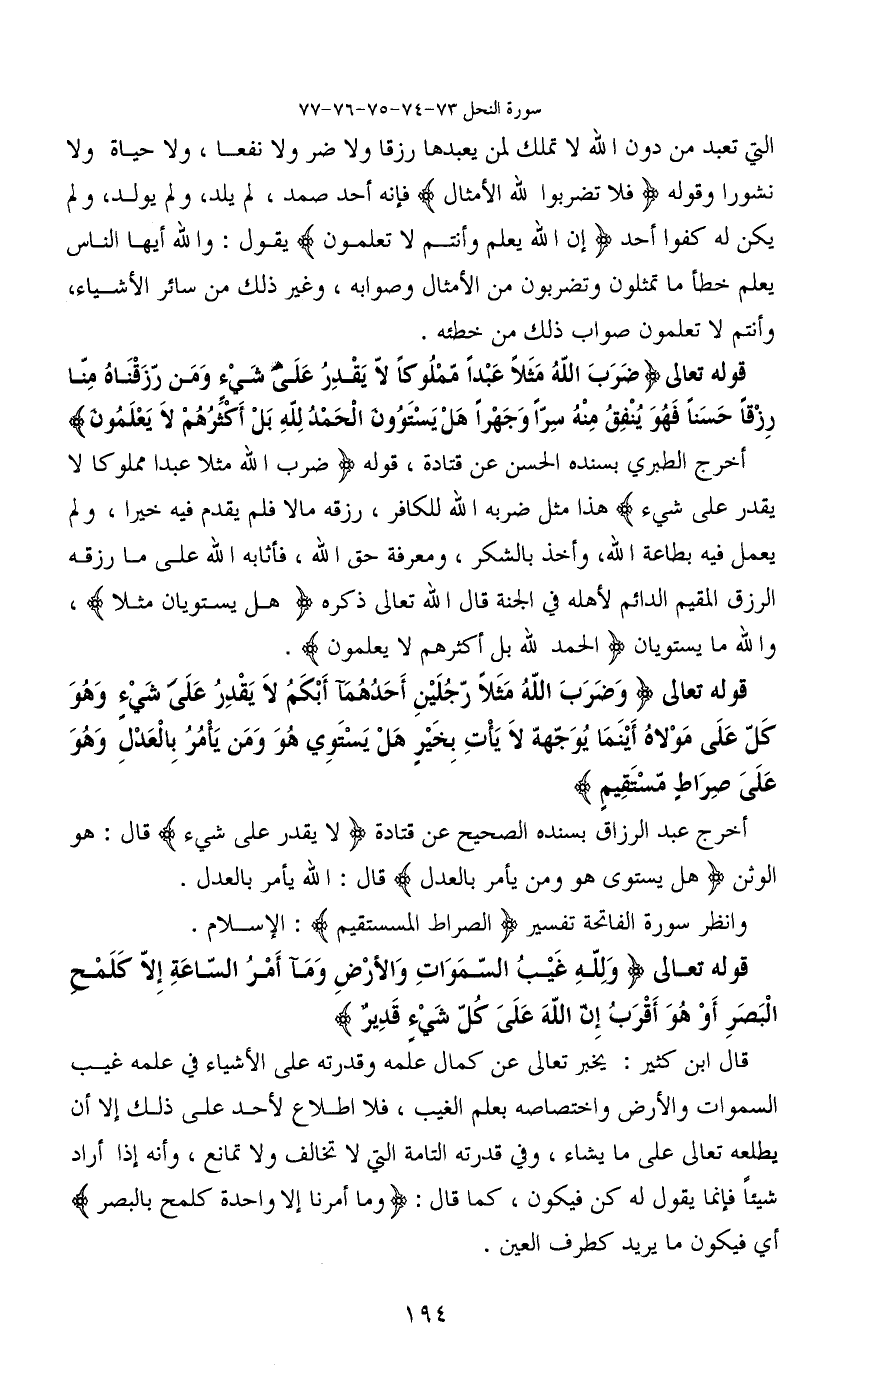 سورة النحل ٧٣-٧٤-٧٥-٧٦-٧٧
التي تعبد من دون الله لا تملك لمن يعبدها رزقا ولا ضر ولا نفعا ، ولا حياة ولا
نشورا وقوله ﴿ فلا تضربوا لله الأمثال ﴾ فإنه أحد صمد ، لم يلد، ولم يولد، ولم
يكن له كفوا أحد ﴿ إن الله يعلم وأنتم لا تعلمون ﴾ يقول : والله أيها الناس
يعلم خطأ ما تمثلون وتضربون من الأمثال وصوابه ، وغير ذلك من سائر الأشياء،
وأنتم لا تعلمون صواب ذلك من خطئه .
قوله تعالى ﴿ ضَرَبَ اللّهُ مَثَلاً عَبْداً مّمْلُوكاً لاّ يَقْدِرُ عَلَىَ شَيْءٍ وَمَن رّزَقْنَاهُ مِنّا
رِزْقاً حَسَناً فَهُوَ يُنْفِقُ مِنْهُ سِرّاً وَجَهْراً هَلْ يَسْتَوُونَ الْحَمْدُ لِلّهِ بَلْ أَكْثَرُهُمْ لاَ يَعْلَمُونَ ﴾
أخرج الطبري بسنده الحسن عن قتادة ، قوله ﴿ ضرب الله مثلا عبدا مملوكا لا
يقدر على شيء ﴾ هذا مثل ضربه الله للكافر ، رزقه مالا فلم يقدم فيه خيرا ، ولم
يعمل فيه بطاعة الله، وأخذ بالشكر ، ومعرفة حق الله ، فأثابه الله على ما رزقه
الرزق المقيم الدائم لأهله في الجنة قال الله تعالى ذكره ﴿ هل يستويان مثلا ﴾ ،
والله ما يستويان ﴿ الحمد لله بل أكثرهم لا يعلمون ﴾ .
قوله تعالى ﴿ وَضَرَبَ اللّهُ مَثَلاً رّجُلَيْنِ أَحَدُهُمَآ أَبْكَمُ لاَ يَقْدِرُ عَلَىَ شَيْءٍ وَهُوَ
كَلّ عَلَى مَوْلاهُ أَيْنَمَا يُوَجّههّ لاَ يَأْتِ بِخَيْرٍ هَلْ يَسْتَوِي هُوَ وَمَن يَأْمُرُ بِالْعَدْلِ وَهُوَ
عَلَىَ صِرَاطٍ مّسْتَقِيمٍ ﴾
أخرج عبد الرزاق بسنده الصحيح عن قتادة ﴿ لا يقدر على شيء ﴾ قال : هو
الوثن ﴿ هل يستوى هو ومن يأمر بالعدل ﴾ قال : الله يأمر بالعدل .
وانظر سورة الفاتحة تفسير ﴿ الصراط المستقيم ﴾ : الإسلام .
قوله تعالى ﴿ وَلِلّهِ غَيْبُ السّمَوَاتِ وَالأَرْضِ وَمَآ أَمْرُ السّاعَةِ إِلاّ كَلَمْحِ
الْبَصَرِ أَوْ هُوَ أَقْرَبُ إِنّ اللّهَ عَلَىَ كُلّ شَيْءٍ قَدِيرٌ ﴾
قال ابن كثير : يخبر تعالى عن كمال علمه وقدرته على الأشياء في علمه غيب
السموات والأرض واختصاصه بعلم الغيب ، فلا اطلاع لأحد على ذلك إلا أن
يطلعه تعالى على ما يشاء ، وفي قدرته التامة التي لا تخالف ولا تمانع ، وأنه إذا أراد
شيئاً فإنما يقول له كن فيكون ، كما قال : ﴿ وما أمرنا إلا واحدة كلمح بالبصر ﴾
أي فيكون ما يريد كطرف العين .
١٩٤